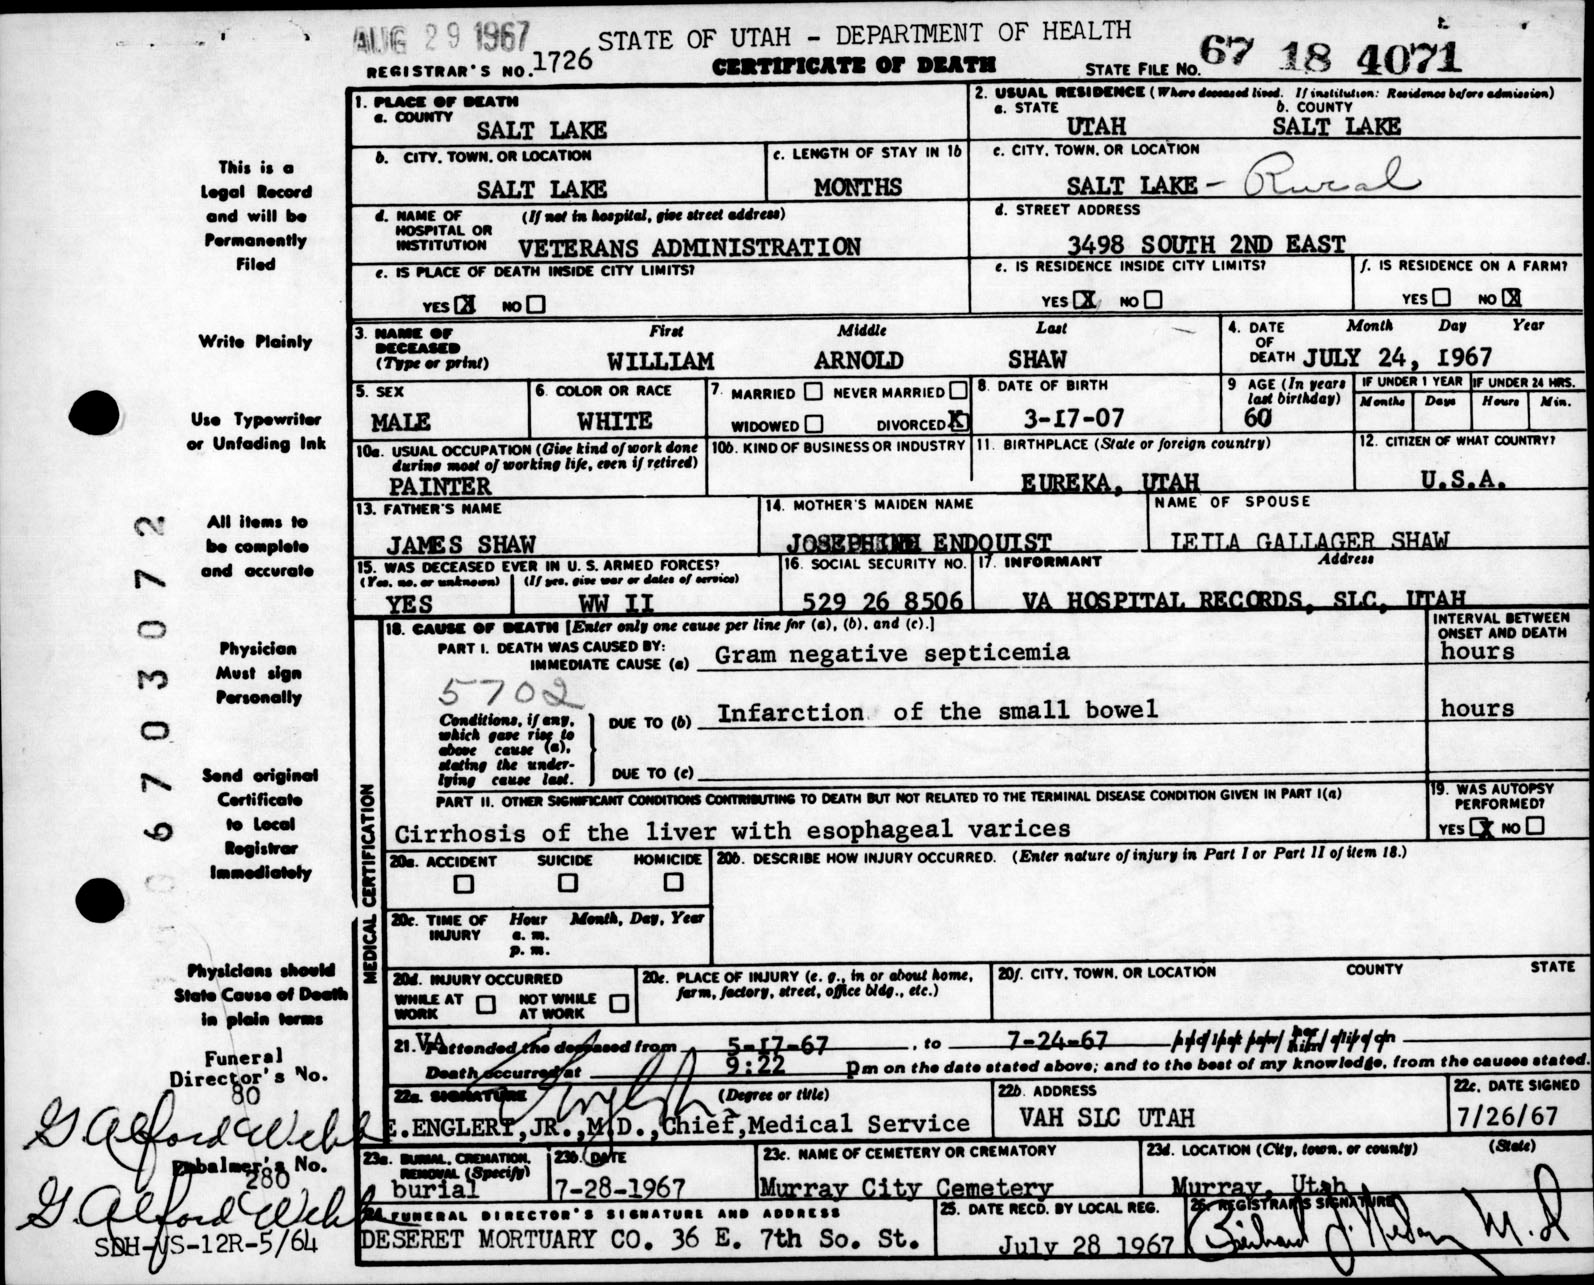 AUG 29 1967
STATE OF UTAH - DEPARTMENT OF HEALTH
REGISTRAR'S NO. 1726
CERTIFICATE OF DEATH
STATE FILE NO. 67 18 4071
1. PLACE OF DEATH
a. COUNTY
SALT LAKE
2. USUAL RESIDENCE (Where deceased lived. If institution: Residence before admission)
a. STATE b. COUNTY
UTAH SALT LAKE
b. CITY, TOWN, OR LOCATION
SALT LAKE
c. LENGTH OF STAY IN 1b
MONTHS
c. CITY, TOWN, OR LOCATION
SALT LAKE - Rural
d. NAME OF HOSPITAL OR INSTITUTION (If not in hospital, give street address)
VETERANS ADMINISTRATION
d. STREET ADDRESS
3498 SOUTH 2ND EAST
e. IS PLACE OF DEATH INSIDE CITY LIMITS?
YES X NO
e. IS RESIDENCE INSIDE CITY LIMITS?
YES X NO
f. IS RESIDENCE ON A FARM?
YES NO X
3. NAME OF DECEASED (Type or print)
First Middle Last
WILLIAM ARNOLD SHAW
4. DATE OF DEATH Month Day Year
JULY 24, 1967
5. SEX
MALE
6. COLOR OR RACE
WHITE
7. MARRIED NEVER MARRIED
WIDOWED DIVORCED X
8. DATE OF BIRTH
3-17-07
9 AGE (In years last birthday)
60
IF UNDER 1 YEAR IF UNDER 24 HRS.
Months Days Hours Min.
10a. USUAL OCCUPATION (Give kind of work done during most of working life, even if retired)
PAINTER
10b. KIND OF BUSINESS OR INDUSTRY
11. BIRTHPLACE (State or foreign country)
EUREKA, UTAH
12. CITIZEN OF WHAT COUNTRY?
U.S.A.
13. FATHER'S NAME
JAMES SHAW
14. MOTHER'S MAIDEN NAME
JOSEPHINE ENDQUIST
NAME OF SPOUSE
LEILA GALLAGER SHAW
15. WAS DECEASED EVER IN U. S. ARMED FORCES?
(Yes, no, or unknown) (If yes, give war or dates of service)
YES WW II
16. SOCIAL SECURITY NO.
529 26 8506
17. INFORMANT Address
VA HOSPITAL RECORDS, SLC, UTAH
MEDICAL CERTIFICATION
18. CAUSE OF DEATH [Enter only one cause per line for (a), (b), and (c).]
INTERVAL BETWEEN ONSET AND DEATH
PART I. DEATH WAS CAUSED BY:
IMMEDIATE CAUSE (a) Gram negative septicemia hours
5702
Conditions, if any, which gave rise to above cause (a), stating the underlying cause last.
DUE TO (b) Infarction of the small bowel hours
DUE TO (c)
PART II. OTHER SIGNIFICANT CONDITIONS CONTRIBUTING TO DEATH BUT NOT RELATED TO THE TERMINAL DISEASE CONDITION GIVEN IN PART I(a)
Cirrhosis of the liver with esophageal varices
19. WAS AUTOPSY PERFORMED?
YES X NO
20a. ACCIDENT SUICIDE HOMICIDE
20b. DESCRIBE HOW INJURY OCCURRED. (Enter nature of injury in Part I or Part II of item 18.)
20c. TIME OF INJURY Hour Month, Day, Year
a. m.
p. m.
20d. INJURY OCCURRED
WHILE AT WORK NOT WHILE AT WORK
20e. PLACE OF INJURY (e. g., in or about home, farm, factory, street, office bldg., etc.)
20f. CITY, TOWN, OR LOCATION COUNTY STATE
21. VA attended the deceased from 5-17-67, to 7-24-67
Death occurred at 9:22 pm on the date stated above; and to the best of my knowledge, from the causes stated.
22a. SIGNATURE (Degree or title)
E. ENGLERT, JR., M.D., Chief, Medical Service
22b. ADDRESS
VAH SLC UTAH
22c. DATE SIGNED
7/26/67
23a. BURIAL, CREMATION, REMOVAL (Specify)
burial
23b. DATE
7-28-1967
23c. NAME OF CEMETERY OR CREMATORY
Murray City Cemetery
23d. LOCATION (City, town, or county) (State)
Murray, Utah
24. FUNERAL DIRECTOR'S SIGNATURE AND ADDRESS
DESERET MORTUARY CO. 36 E. 7th So. St.
25. DATE RECD. BY LOCAL REG.
July 28 1967
26. REGISTRAR'S SIGNATURE
This is a
Legal Record
and will be
Permanently
Filed
Write Plainly
Use Typewriter
or Unfading Ink
All items to
be complete
and accurate
Physician
Must sign
Personally
Send original
Certificate
to Local
Registrar
Immediately
Physicians should
State Cause of Death
in plain terms
Funeral
Director's No.
80
G. Alford Webb
Embalmer's No.
280
G. Alford Webb
SDH-VS-12R-5/64
0670 3072